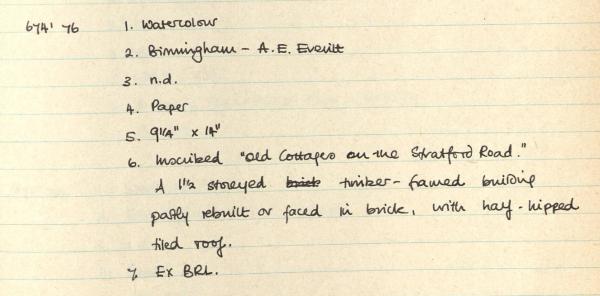 674' 76 1. Watercolour
2. Birmingham - A.E. Everitt
3. n.d.
4. Paper
5. 9 1/4" x 14"
6. Inscribed "Old Cottages on the Stratford Road."
A 1 1/2 storeyed brick timber-framed building
partly rebuilt or faced in brick, with half-hipped
tiled roof.
7. Ex BRL.